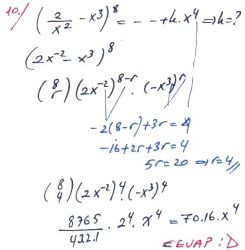 10./ (2/x² - x³)⁸ = - - + k.x⁴ ⇒ k=?
(2x⁻² - x³)⁸
(8 r) (2x⁻²)⁸⁻ʳ . (-x³)ʳ
-2(8-r)+3r=4
-16+2r+3r=4
5r=20 ⇒ r=4
(8 4) (2x⁻²)⁴ (-x³)⁴
8765/432.1 . 2⁴ . x⁴ = 70.16.x⁴
CEVAP :D